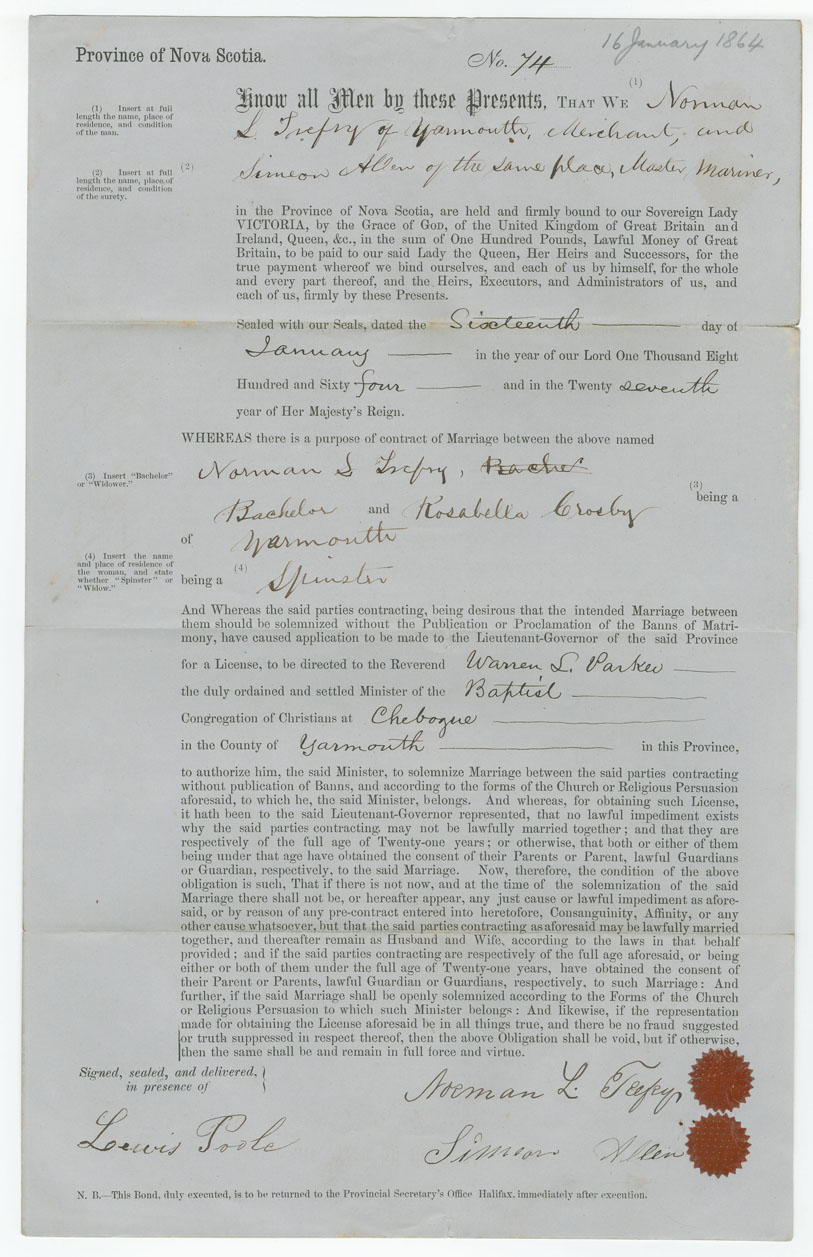 16 January 1864
Province of Nova Scotia.
No. 74
(1) Insert at full
length the name, place of
residence, and condition
of the man.
Know all Men by these Presents, THAT WE (1) Norman
L Trefry of Yarmouth, Merchant, and
(2) Insert at full
length the name, place of
residence, and condition
of the surety.
(2) Simeon Allen of the same place, Master Mariner,
in the Province of Nova Scotia, are held and firmly bound to our Sovereign Lady
VICTORIA, by the Grace of GOD, of the United Kingdom of Great Britain and
Ireland, Queen, &c., in the sum of One Hundred Pounds, Lawful Money of Great
Britain, to be paid to our said Lady the Queen, Her Heirs and Successors, for the
true payment whereof we bind ourselves, and each of us by himself, for the whole
and every part thereof, and the Heirs, Executors, and Administrators of us, and
each of us, firmly by these Presents.
Sealed with our Seals, dated the Sixteenth day of
January in the year of our Lord One Thousand Eight
Hundred and Sixty four and in the Twenty seventh
year of Her Majesty's Reign.
WHEREAS there is a purpose of contract of Marriage between the above named
(3) Insert "Bachelor"
or "Widower."
Norman L Trefry, Bachel
(3) being a
Bachelor and Rosabella Crosby
of Yarmouth
(4) Insert the name
and place of residence of
the woman, and state
whether "Spinster" or
"Widow."
being a (4) Spinster
And Whereas the said parties contracting, being desirous that the intended Marriage between
them should be solemnized without the Publication or Proclamation of the Banns of Matri-
mony, have caused application to be made to the Lieutenant-Governor of the said Province
for a License, to be directed to the Reverend Warren L. Parker
the duly ordained and settled Minister of the Baptist
Congregation of Christians at Chebogue
in the County of Yarmouth in this Province,
to authorize him, the said Minister, to solemnize Marriage between the said parties contracting
without publication of Banns, and according to the forms of the Church or Religious Persuasion
aforesaid, to which he, the said Minister, belongs. And whereas, for obtaining such License,
it hath been to the said Lieutenant-Governor represented, that no lawful impediment exists
why the said parties contracting, may not be lawfully married together; and that they are
respectively of the full age of Twenty-one years; or otherwise, that both or either of them
being under that age have obtained the consent of their Parents or Parent, lawful Guardians
or Guardian, respectively, to the said Marriage. Now, therefore, the condition of the above
obligation is such, That if there is not now, and at the time of the solemnization of the said
Marriage there shall not be, or hereafter appear, any just cause or lawful impediment as afore-
said, or by reason of any pre-contract entered into heretofore, Consanguinity, Affinity, or any
other cause whatsoever, but that the said parties contracting as aforesaid may be lawfully married
together, and thereafter remain as Husband and Wife, according to the laws in that behalf
provided; and if the said parties contracting are respectively of the full age aforesaid, or being
either or both of them under the full age of Twenty-one years, have obtained the consent of
their Parent or Parents, lawful Guardian or Guardians, respectively, to such Marriage: And
further, if the said Marriage shall be openly solemnized according to the Forms of the Church
or Religious Persuasion to which such Minister belongs: And likewise, if the representation
made for obtaining the License aforesaid be in all things true, and there be no fraud suggested
or truth suppressed in respect thereof, then the above Obligation shall be void, but if otherwise,
then the same shall be and remain in full force and virtue.
Signed, sealed, and delivered,
in presence of
Norman L. Trefry
Lewis Poole
Simeon Allen
N. B.—This Bond, duly executed, is to be returned to the Provincial Secretary's Office Halifax, immediately after execution.